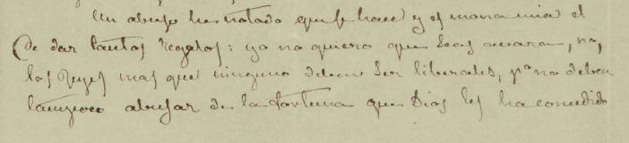 Un abuso he notado que se hace y es mona mia el
de dar tantos regalos: yo no quiero que seas avara, no,
los Reyes mas que ninguno deben ser liberales, pº no deben
tampoco abusar de la fortuna que Dios les ha concedido